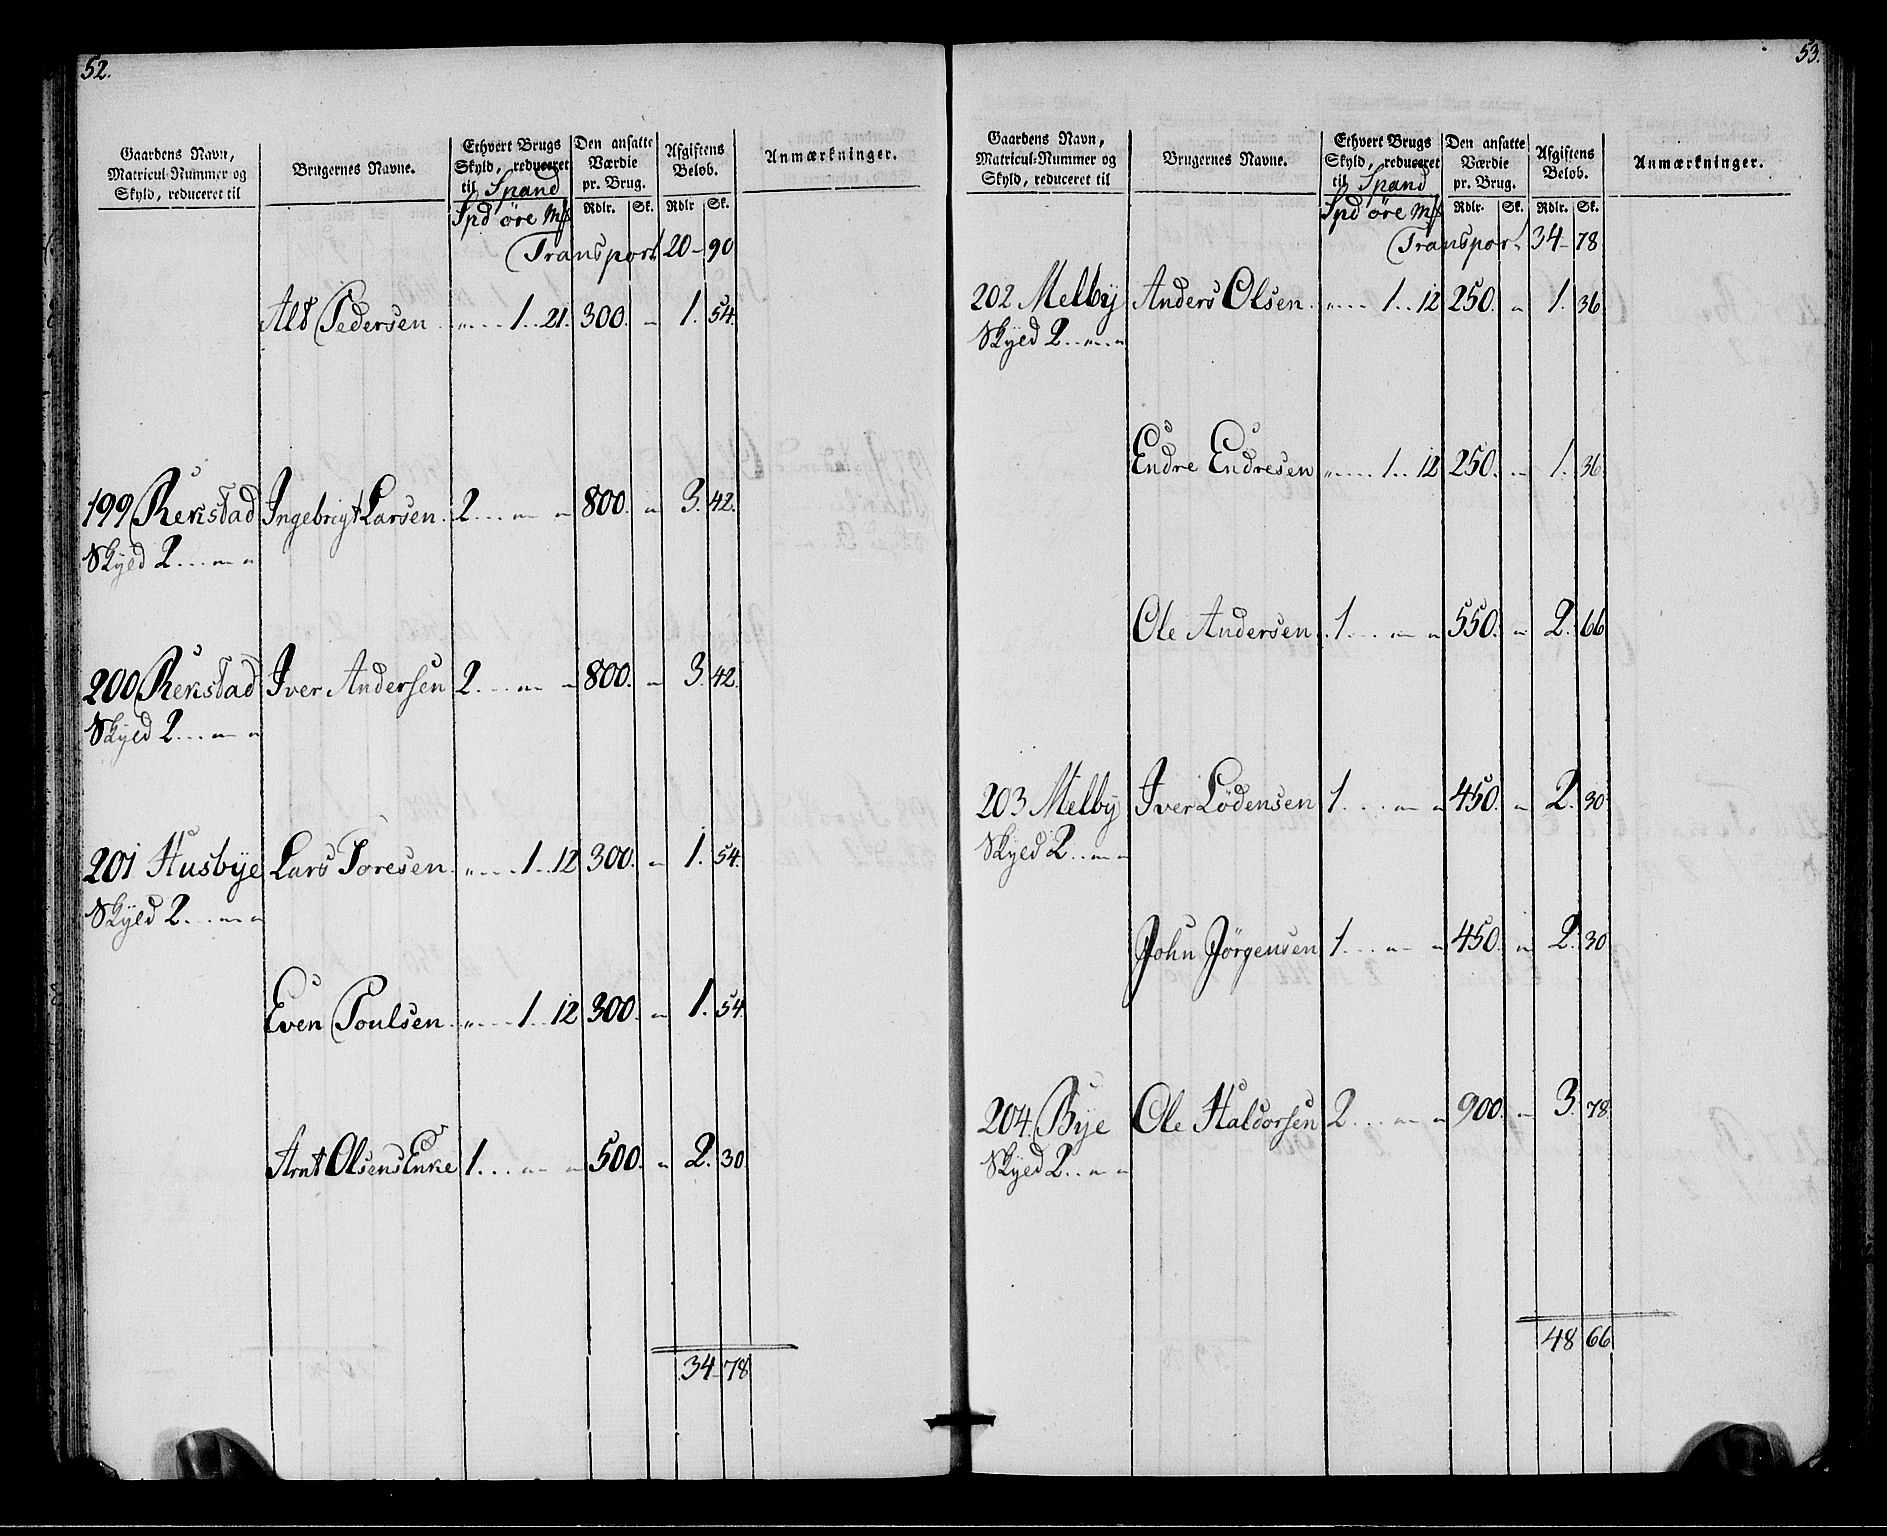 52.
Gaardens Navn, Matricul-Nummer og Skyld, reduceret til | Brugernes Navne. | Ethvert Brugs Skyld, reduceret til Spand | Den ansatte Værdie pr. Brug. | Afgiftens Beløb. | Anmærkninger.
Spd øre Mk | Rdlr. | Sk. | Rdlr | Sk.
Transport 20 - 90
Alb Pedersen „ 1 .. 21. 300. „ 1. 54.
199 Rekstad Ingebrigt Larsen. 2 ... „ „ 800. „ 3. 42.
Skyld 2 ... „ „
200 Rekstad Iver Andersen 2 ... „ „ 800. „ 3. 42.
Skyld 2 ... „ „
201 Husbye Lars Toresen. „ 1 .. 12 300. „ 1. 54.
Skyld 2 ... „ „
Even Poulsen. „ 1 .. 12 300. „ 1. 54
Arnt Olsens Enke 1 ... „ „ 500. „ 2. 30
34 - 78
53.
Gaardens Navn, Matricul-Nummer og Skyld, reduceret til | Brugernes Navne. | Ethvert Brugs Skyld, reduceret til Spand | Den ansatte Værdie pr. Brug. | Afgiftens Beløb. | Anmærkninger.
Spd øre Mk | Rdlr. | Sk. | Rdlr. | Sk.
Transport 34 - 78
202 Melby Anders Olsen. „ 1 .. 12 250. „ 1. 36
Skyld 2 .. „ „
Endre Endresen „ 1 .. 12 250. „ 1. 36
Ole Andersen. 1 ... „ „ 550. „ 2. 66
203 Melby Iver Lödensen 1 ... „ „ 450. „ 2. 30
Skyld 2 .. „ „
John Jörgensen 1 ... „ „ 450. „ 2. 30
204 Bye Ole Haldorsen 2 ... „ „ 900. „ 3. 78
Skyld 2 .. „ „
48 66